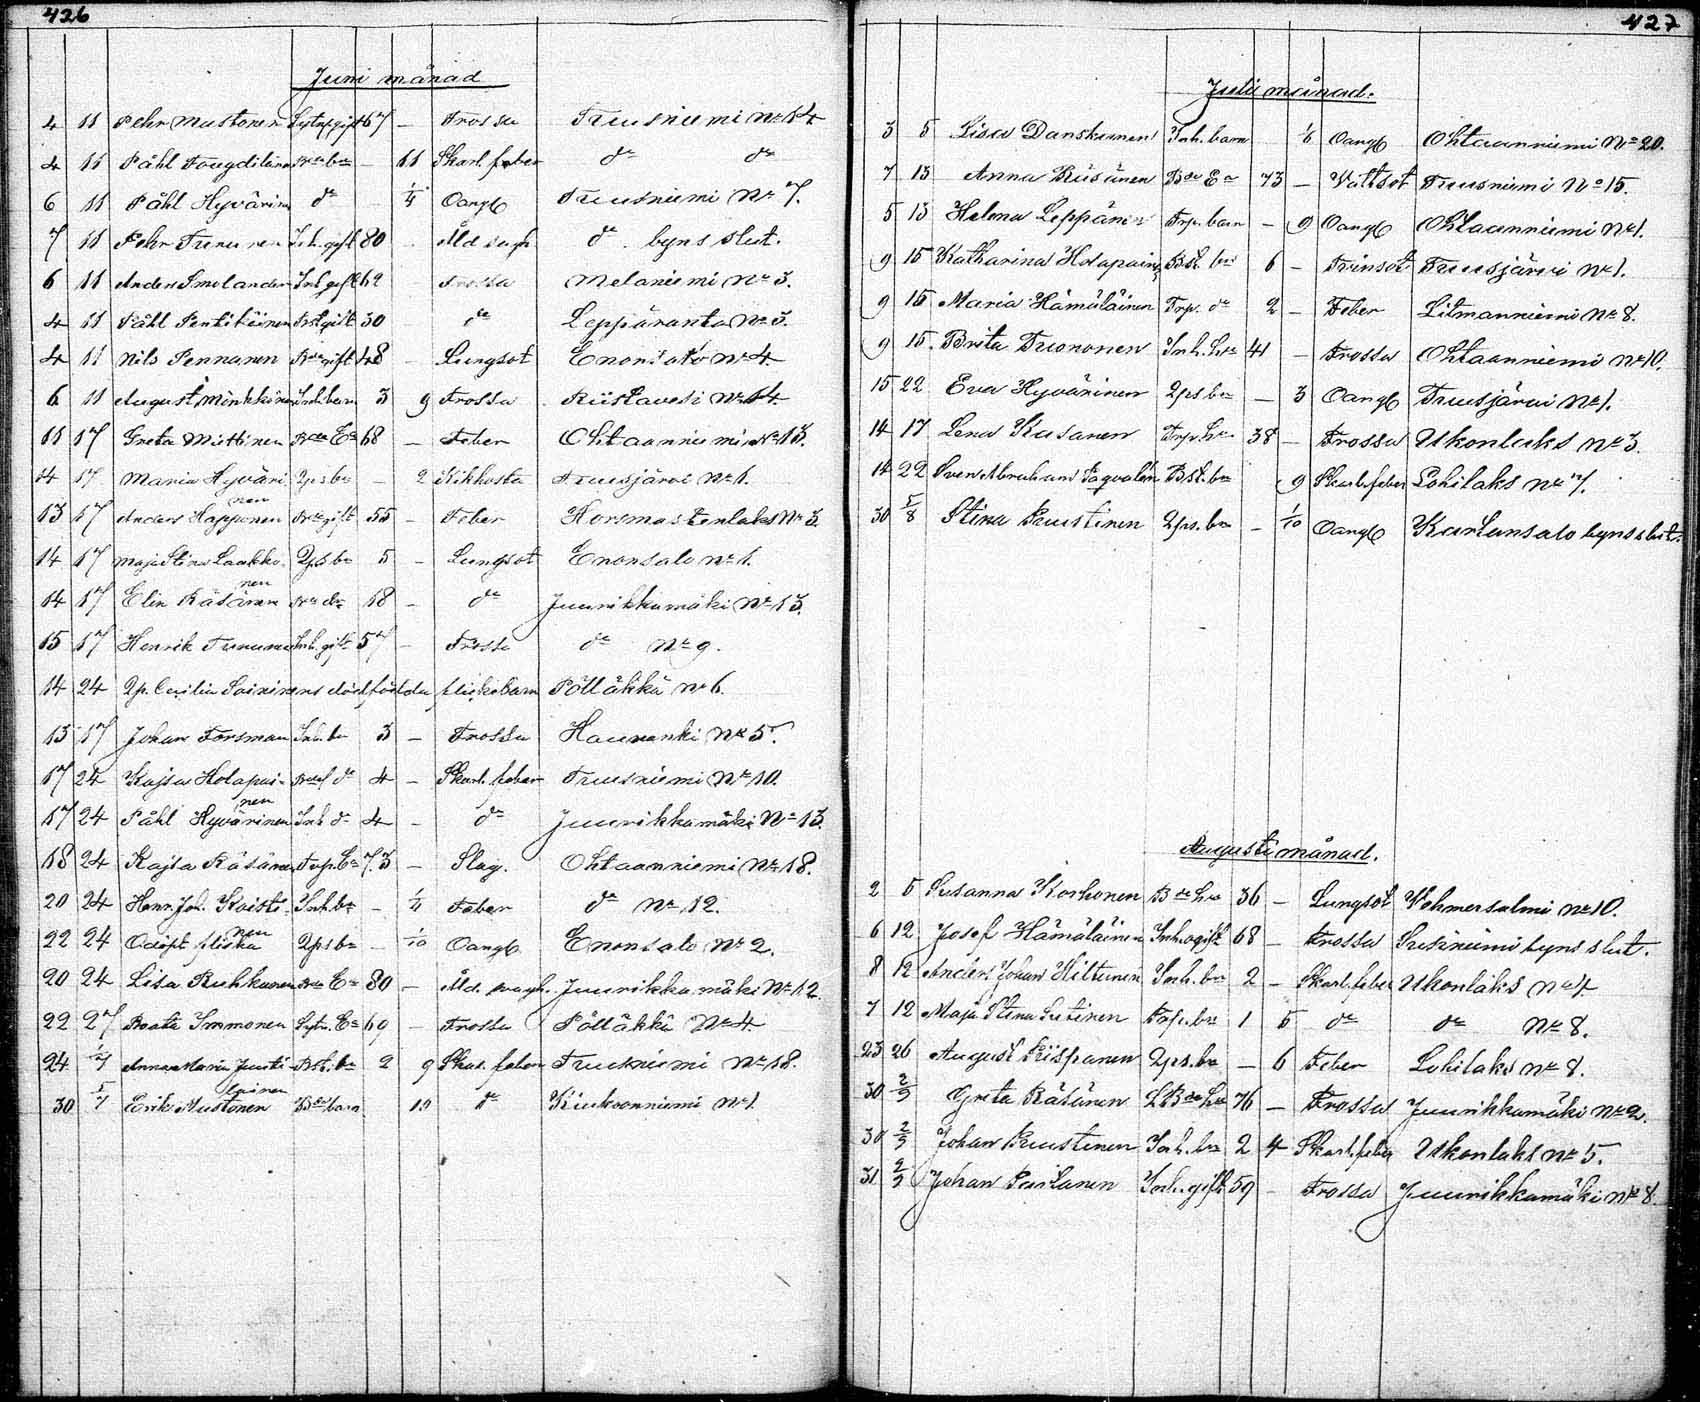 426
Juni månad
4 11 Pehr Mustonen gift 67 — Frossa Tuusniemi No 14
4 11 Påhl — 11 Skarl. feber do do
6 11 Påhl Hyvärin do 1/4 Oangf Tuusniemi No 7.
7 11 Pehr Turunen Inh. gift 80 Åld. svagh do byns slut.
6 11 Anders Smolander Inh gift 62 Frossa Melaniemi No 3.
4 11 Påhl Pentikäinen gift 30 do Lepparanta No 3.
4 11 Nils Pennanen Bde gift 48 — Lungsot Enonsalo No 4.
6 11 August Mönkkönen Inh. barn 3 9 Frossa Riistavesi No 14.
11 17 Greta Miettinen Bde Ea 68 — Feber Ohtaanniemi No 13.
14 17 Maria Hyvärinen Qps bn — 2 Kikhosta Tuusjärvi No 1.
13 17 Anders Happonen Bde gift 55 — Feber Horsmastenlaks No 3.
14 17 Maja Stina Laakkonen Qps bn 5 — Lungsot Enonsalo No 1.
14 17 Elin Räsänen Bde dr 18 — do Juurikkamäki No 13.
15 17 Henrik Turunen Inh. gift 57 — Frossa do No 9.
14 24 Qp. Cecilia Soininens dödfödda flickobarn Pölläkkä No 6.
13 17 Johan Forsman Inh. bn 3 — Frossa Hauranki No 5.
17 24 Kajsa Holopainen do 4 — Skarl. feber Tuusniemi No 10.
17 24 Påhl Hyvärinen Inh do 4 — do Juurikkamäki No 13.
18 24 Kajsa Räsänen Torp. Ea 73 — Slag. Ohtaanniemi No 18.
20 24 Henr. Joh. Koistinen Inh. bn — 1/4 Feber do No 12.
22 24 Odöpt flicka Qps bn — 1/10 Oangf Enonsalo No 2.
20 24 Lisa Ruhkanen Bde Ea 80 — Åld. svagh. Juurikkamäki No 12.
22 27 Beata Immonen Sytn. Ea 69 — Frossa Pölläkkä No 4
24 1/7 Anna Maria Juutilainen Bst. bn 2 9 Skarl. feber Tuusniemi No 18.
30 5/7 Erik Mustonen Bde barn 10 do Kiukoonniemi No 1.
427
Julii månad.
3 5 Lisa Danskanen Inh. barn 1/6 Oangf Ohtaanniemi No 20.
7 13 Anna Räsänen Bde Ea 73 — Vattsot Tuusniemi No 15.
5 13 Helena Leppänen Trp. barn — 9 Oangf Ohtaanniemi No 1.
9 15 Katharina Holopainen Bst. bn 6 — Tvinsot Tuusjärvi No 1.
9 15 Maria Hämäläinen Trp. do 2 — Feber Litmanniemi No 8.
9 15. Brita Tuononen Inh. hu 41 — Frossa Ohtaanniemi No 10.
15 22 Eva Hyvärinen Qps bn — 3 Oangf Tuusjärvi No 1.
14 17 Lena Kasanen Trp. hu 38 — Frossa Ukonlaks No 3.
14 22 Sven Abraham Fagvalén Bst. bn 9 Skarl. feber Lohilaks No 7.
30 5/8 Stina Ruustinen Qps. bn — 1/10 Oangf Kurlansalo byns slut.
Augusti månad.
2 5 Susanna Korhonen Bde hu 36 — Lungsot Vehmersalmi No 10.
6 12 Josef Hämäläinen Inh. ogift 68 — Frossa Susiniemi byns slut.
8 12 Anders Johan Hiltunen Inh. bn 2 — Skarl. feber Ukonlaks No 4.
7 12 Maja Stina Sutinen Trp. bn 1 5 do do No 8.
23 26 August Piispanen Qps. bn — 6 Feber Lohilaks No 8.
30 2/9 Greta Räsänen Bde 76 — Frossa Juurikkamäki No 2.
30 2/9 Johan Ruustinen Inh. bn 2 4 Skarl. feber Ukonlaks No 5.
31 2/9 Johan Parlanen Inh. gift 59 — Frossa Juurikkamäki No 8.